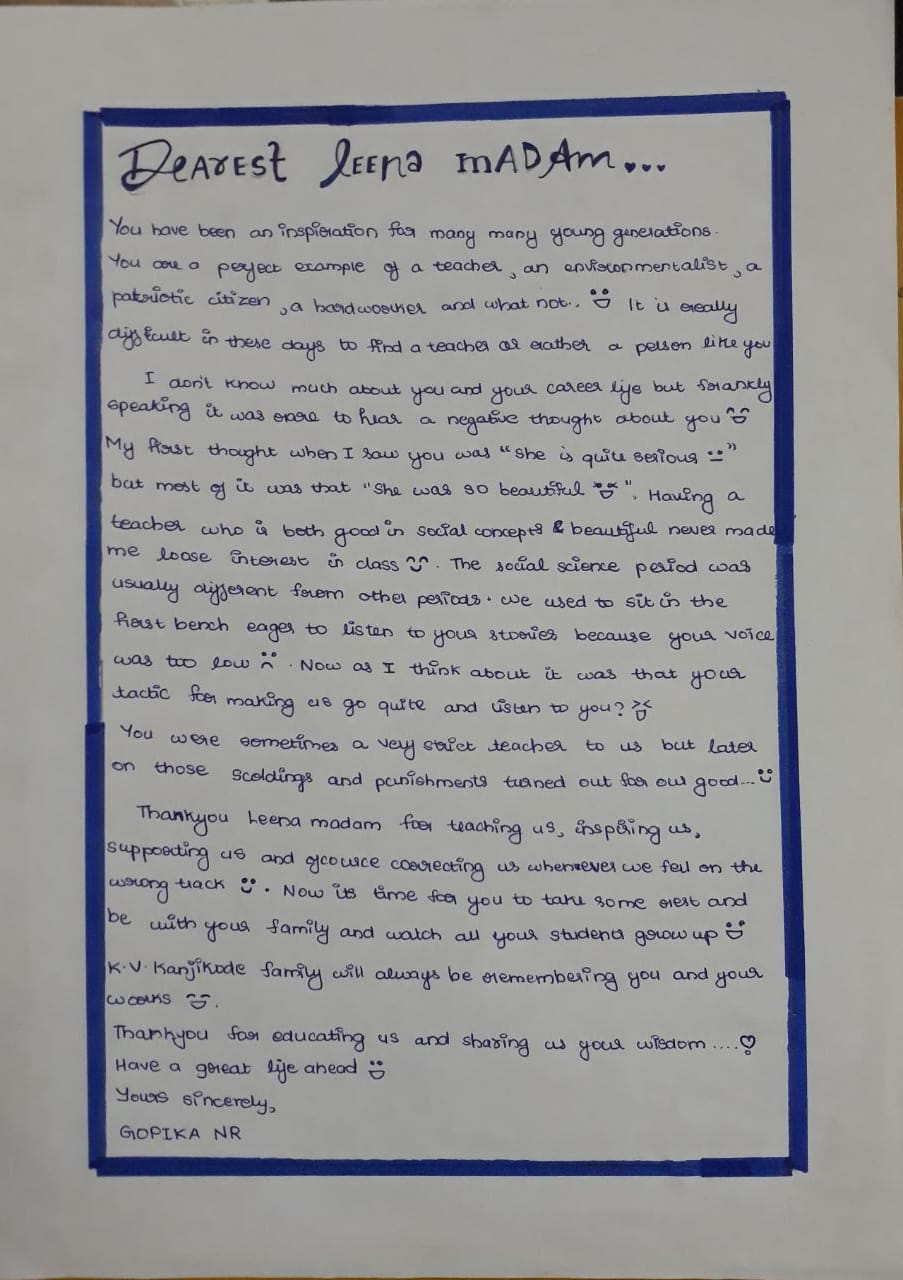 DEAREST leena mADAm...
You have been an inspiration for many many young generations.
You are a perfect example of a teacher, an environmentalist, a
patriotic citizen, a hardworker and what not.. It is really
difficult in these days to find a teacher or rather a person like you
I don't know much about you and your career life but frankly
speaking it was rare to hear a negative thought about you
My first thought when I saw you was "she is quite serious"
but most of it was that "She was so beautiful". Having a
teacher who is both good in social concepts & beautiful never made
me loose interest in class. The social science period was
usually different from other periods. We used to sit in the
first bench eager to listen to your stories because your voice
was too low. Now as I think about it was that your
tactic for making us go quite and listen to you?
You were sometimes a vey strict teacher to us but later
on those scoldings and punishments turned out for our good...
Thankyou Leena madam for teaching us, inspiring us,
supporting us and ofcource correcting us whenever we fell on the
wrong track. Now its time for you to take some rest and
be with your family and watch all your students grow up
K.V. Kanjikode family will always be remembering you and your
works.
Thankyou for educating us and sharing us your wisdom....
Have a great life ahead
Yours sincerely,
GOPIKA NR